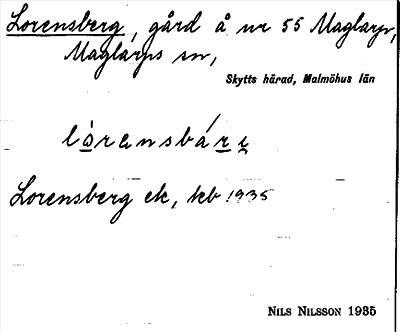 Lorensberg, gård å nr 55 Maglarp,
Maglarps sn,
Skytts härad, Malmöhus län
Lorensberg ek, kb 1935
NILS NILSSON 1935